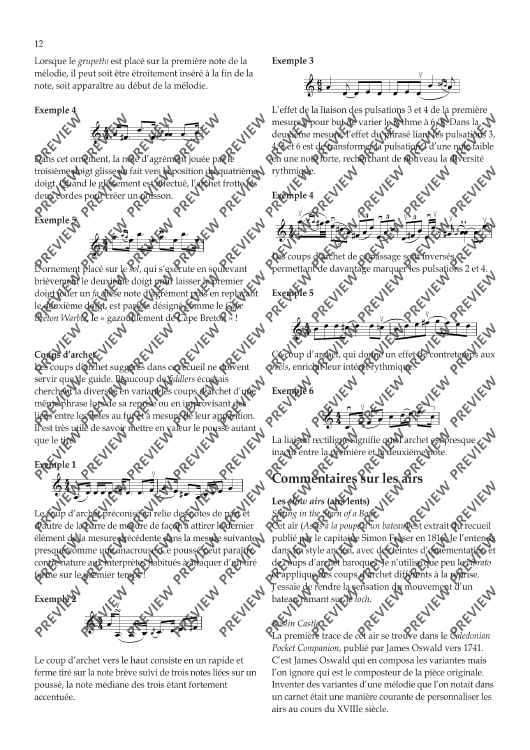 12
Lorsque le grupetto est placé sur la première note de la
mélodie, il peut soit être étroitement inséré à la fin de la
note, soit apparaître au début de la mélodie.
Exemple 4
Dans cet ornement, la note d'agrément jouée par le
troisième doigt glisse en fait vers la position du quatrième
doigt. Quand le glissement est effectué, l'archet frotte les
deux cordes pour créer un unisson.
Exemple 5
L'ornement placé sur le sol, qui s'exécute en soulevant
brièvement le deuxième doigt pour laisser le premier
doigt jouer un fa dièse note d'agrément puis en replaçant
le deuxième doigt, est parfois désigné comme le Cape
Breton Warble, le « gazouillement de Cape Breton » !
Coups d'archet
Les coups d'archet suggérés dans ce recueil ne doivent
servir que de guide. Beaucoup de fiddlers écossais
cherchent la diversité en variant les coups d'archet d'une
même phrase lors de sa reprise ou en improvisant des
liens entre les notes au fur et à mesure de leur apparition.
Il est très utile de savoir mettre en valeur le poussé autant
que le tiré.
Exemple 1
Le coup d'archet préconisé ici relie des notes de part et
d'autre de la barre de mesure de façon à attirer le dernier
élément de la mesure précédente dans la mesure suivante,
presque comme une anacrouse. Le poussé peut paraître
contre nature aux interprètes habitués à attaquer d'un tiré
ferme sur le premier temps.
Exemple 2
Le coup d'archet vers le haut consiste en un rapide et
ferme tiré sur la note brève suivi de trois notes liées sur un
poussé, la note médiane des trois étant fortement
accentuée.
Exemple 3
L'effet de la liaison des pulsations 3 et 4 de la première
mesure a pour but de varier le rythme à 6/8. Dans la
deuxième mesure, l'effet du phrasé liant les pulsations 3,
4, 5 et 6 est de transformer la pulsation 4 d'une note faible
en une note forte, recherchant de nouveau la diversité
rythmique.
Exemple 4
Les coups d'archet de croassage sont inversés
permettant de davantage marquer les pulsations 2 et 4.
Exemple 5
Ce coup d'archet, qui donne un effet de contretemps aux
reels, enrichit leur intérêt rythmique.
Exemple 6
La liaison rectiligne signifie que l'archet est presque
inactif entre la première et la deuxième note.
Commentaires sur les airs
Les slow airs (airs lents)
Sitting in the Stern of a Boat
Cet air (Assis à la poupe d'un bateau) est extrait du recueil
publié par le capitaine Simon Fraser en 1816. Je l'entends
dans un style ancien, avec des teintes d'ornementation et
de coups d'archet baroques. Je n'utilise que peu le vibrato
et applique des coups d'archet différents à la reprise.
J'essaie de rendre la sensation du mouvement d'un
bateau ramant sur le loch.
Roslin Castle
La première trace de cet air se trouve dans le Caledonian
Pocket Companion, publié par James Oswald vers 1741.
C'est James Oswald qui en composa les variantes mais
l'on ignore qui est le compositeur de la pièce originale.
Inventer des variantes d'une mélodie que l'on notait dans
un carnet était une manière courante de personnaliser les
airs au cours du XVIIIe siècle.